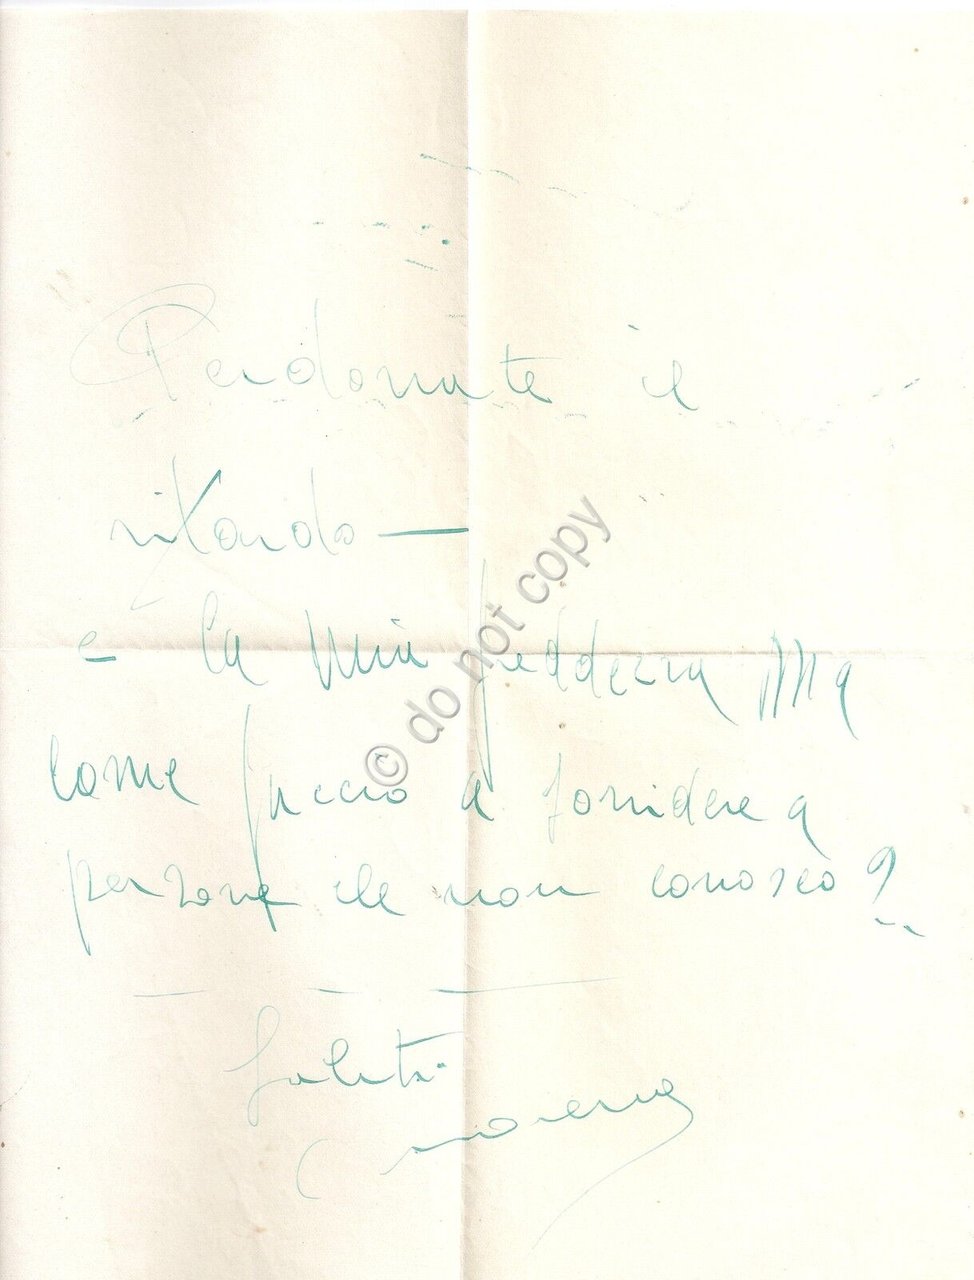 Perdonate il
ritardo —
e la mia freddezza Ma
come faccio a sorridere a
persone che non conosco?..
Saluti
© do not copy